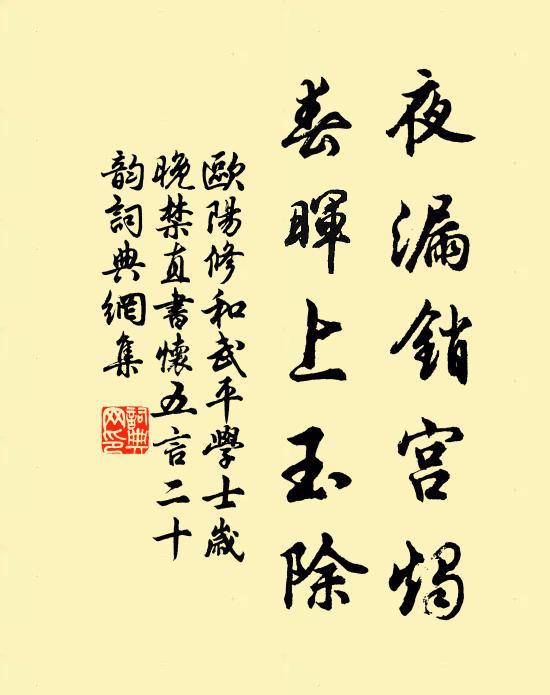 夜漏銷宮燭
春暉上玉除
歐陽修和武平學士歲
晚禁直書懷五言二十
韵詞典網集
詞典
网印